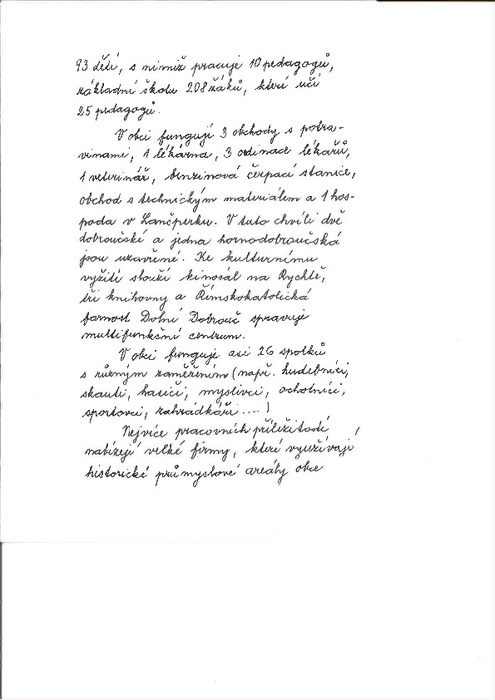 93 dětí, s nimiž pracuje 10 pedagogů,
základní školu 208 žáků, které učí
25 pedagogů.
V obci fungují 3 obchody s potra-
vinami, 1 lékárna, 3 ordinace lékařů,
1 veterinář, benzinová čerpací stanice,
obchod s technickým materiálem a 1 hos-
poda v Lanšperku. V tuto chvíli dvě
dobroučské a jedna hornodobroučská
jsou uzavřené. Ke kulturnímu
vyžití slouží kinosál na Rychtě,
tři knihovny a Římskokatolická
farnost Dolní Dobrouč spravuje
multifunkční centrum.
V obci funguje asi 26 spolků
s různým zaměřením (např. hudebníci,
skauti, hasiči, myslivci, ochotníci,
sportovci, zahrádkáři....)
Nejvíce pracovních příležitostí
nabízejí velké firmy, které využívají
historické průmyslové areály obce